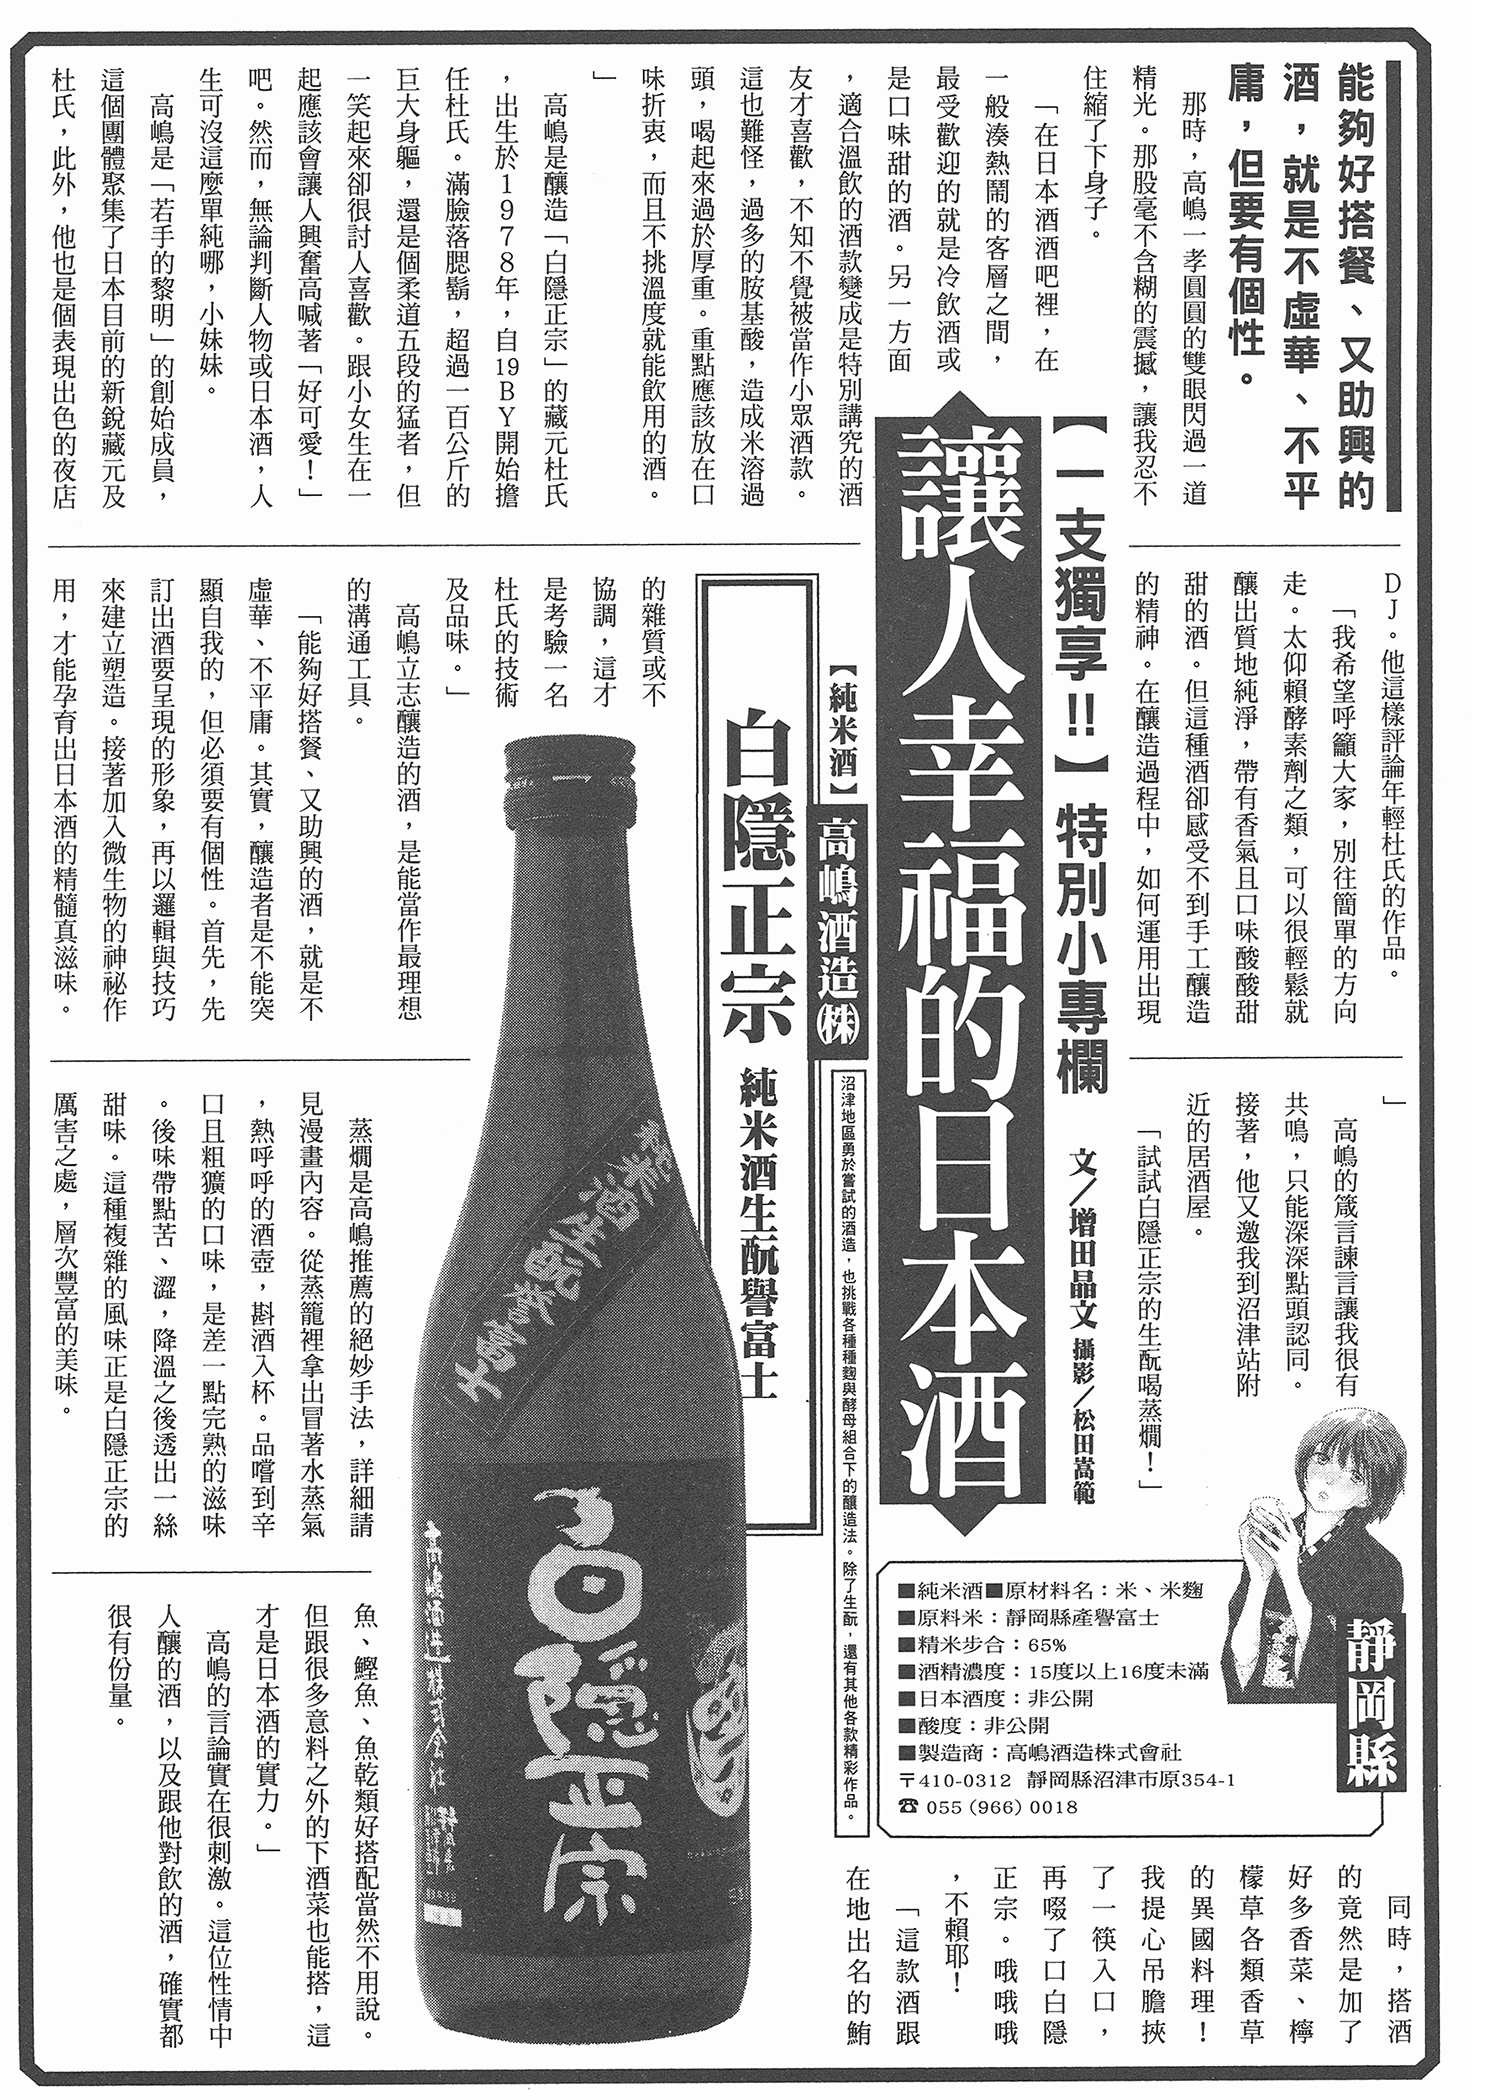 能夠好搭餐、又助興的
酒，就是不虛華、不平
庸，但要有個性。
【一支獨享!!】特別小專欄
讓人幸福的日本酒
文／增田晶文 攝影／松田嵩範
那時，高嶋一孝圓圓的雙眼閃過一道
精光。那股毫不含糊的震撼，讓我忍不
住縮了下身子。
「在日本酒酒吧裡，在
一般湊熱鬧的客層之間，
最受歡迎的就是冷飲酒或
是口味甜的酒。另一方面
，適合溫飲的酒款變成是特別講究的酒
友才喜歡，不知不覺被當作小眾酒款。
這也難怪，過多的胺基酸，造成米溶過
頭，喝起來過於厚重。重點應該放在口
味折衷，而且不挑溫度就能飲用的酒。
」
高嶋是釀造「白隱正宗」的藏元杜氏
，出生於1978年，自19BY開始擔
任杜氏。滿臉落腮鬍，超過一百公斤的
巨大身軀，還是個柔道五段的猛者，但
一笑起來卻很討人喜歡。跟小女生在一
起應該會讓人興奮高喊著「好可愛！」
吧。然而，無論判斷人物或日本酒，人
生可沒這麼單純哪，小妹妹。
高嶋是「若手的黎明」的創始成員，
這個團體聚集了日本目前的新銳藏元及
杜氏，此外，他也是個表現出色的夜店
DJ。他這樣評論年輕杜氏的作品。
「我希望呼籲大家，別往簡單的方向
走。太仰賴酵素劑之類，可以很輕鬆就
釀出質地純淨，帶有香氣且口味酸酸甜
甜的酒。但這種酒卻感受不到手工釀造
的精神。在釀造過程中，如何運用出現
的雜質或不
協調，這才
是考驗一名
杜氏的技術
及品味。」
高嶋立志釀造的酒，是能當作最理想
的溝通工具。
「能夠好搭餐、又助興的酒，就是不
虛華、不平庸。其實，釀造者是不能突
顯自我的，但必須要有個性。首先，先
訂出酒要呈現的形象，再以邏輯與技巧
來建立塑造。接著加入微生物的神祕作
用，才能孕育出日本酒的精髓真滋味。
」
高嶋的箴言諫言讓我很有
共鳴，只能深深點頭認同。
接著，他又邀我到沼津站附
近的居酒屋。
「試試白隱正宗的生酛喝蒸燗！」
蒸燗是高嶋推薦的絕妙手法，詳細請
見漫畫內容。從蒸籠裡拿出冒著水蒸氣
，熱呼呼的酒壺，斟酒入杯。品嚐到辛
口且粗獷的口味，是差一點完熟的滋味
。後味帶點苦、澀，降溫之後透出一絲
甜味。這種複雜的風味正是白隱正宗的
厲害之處，層次豐富的美味。
同時，搭酒
的竟然是加了
好多香菜、檸
檬草各類香草
的異國料理！
我提心吊膽挾
了一筷入口，
再啜了口白隱
正宗。哦哦哦
，不賴耶！
「這款酒跟
在地出名的鮪
魚、鰹魚、魚乾類好搭配當然不用說。
但跟很多意料之外的下酒菜也能搭，這
才是日本酒的實力。」
高嶋的言論實在很刺激。這位性情中
人釀的酒，以及跟他對飲的酒，確實都
很有份量。
【純米酒】高嶋酒造㈱
白隱正宗 純米酒生酛譽富士
沼津地區勇於嘗試的酒造，也挑戰各種種麴與酵母組合下的釀造法。除了生酛，還有其他各款精彩作品。
靜岡縣
■純米酒■原材料名：米、米麴
■原料米：靜岡縣產譽富士
■精米步合：65%
■酒精濃度：15度以上16度未滿
■日本酒度：非公開
■酸度：非公開
■製造商：高嶋酒造株式會社
〒410-0312 靜岡縣沼津市原354-1
☎ 055 (966) 0018
純米酒生酛誉富士
白隠正宗
高嶋酒造株式会社